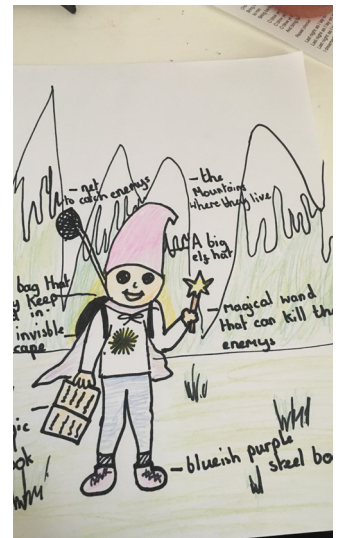 – net
to catch enemys
– the
Mountains
where they live
A big
elf hat
bag that
y keep
in.
invisble
cape
– Magical wand
that can kill the
enemys
gic
ook
– blueish purple
steel bo